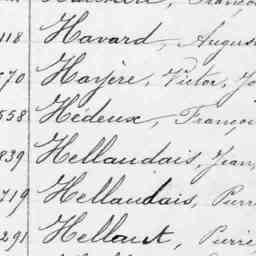 118 Havard, August
570 Hayère, Victor, Jo
558 Hédeux, Françoi
839 Hellaudais, Jean,
719 Hellaudais, Pierre
291 Hellaut, Pierre